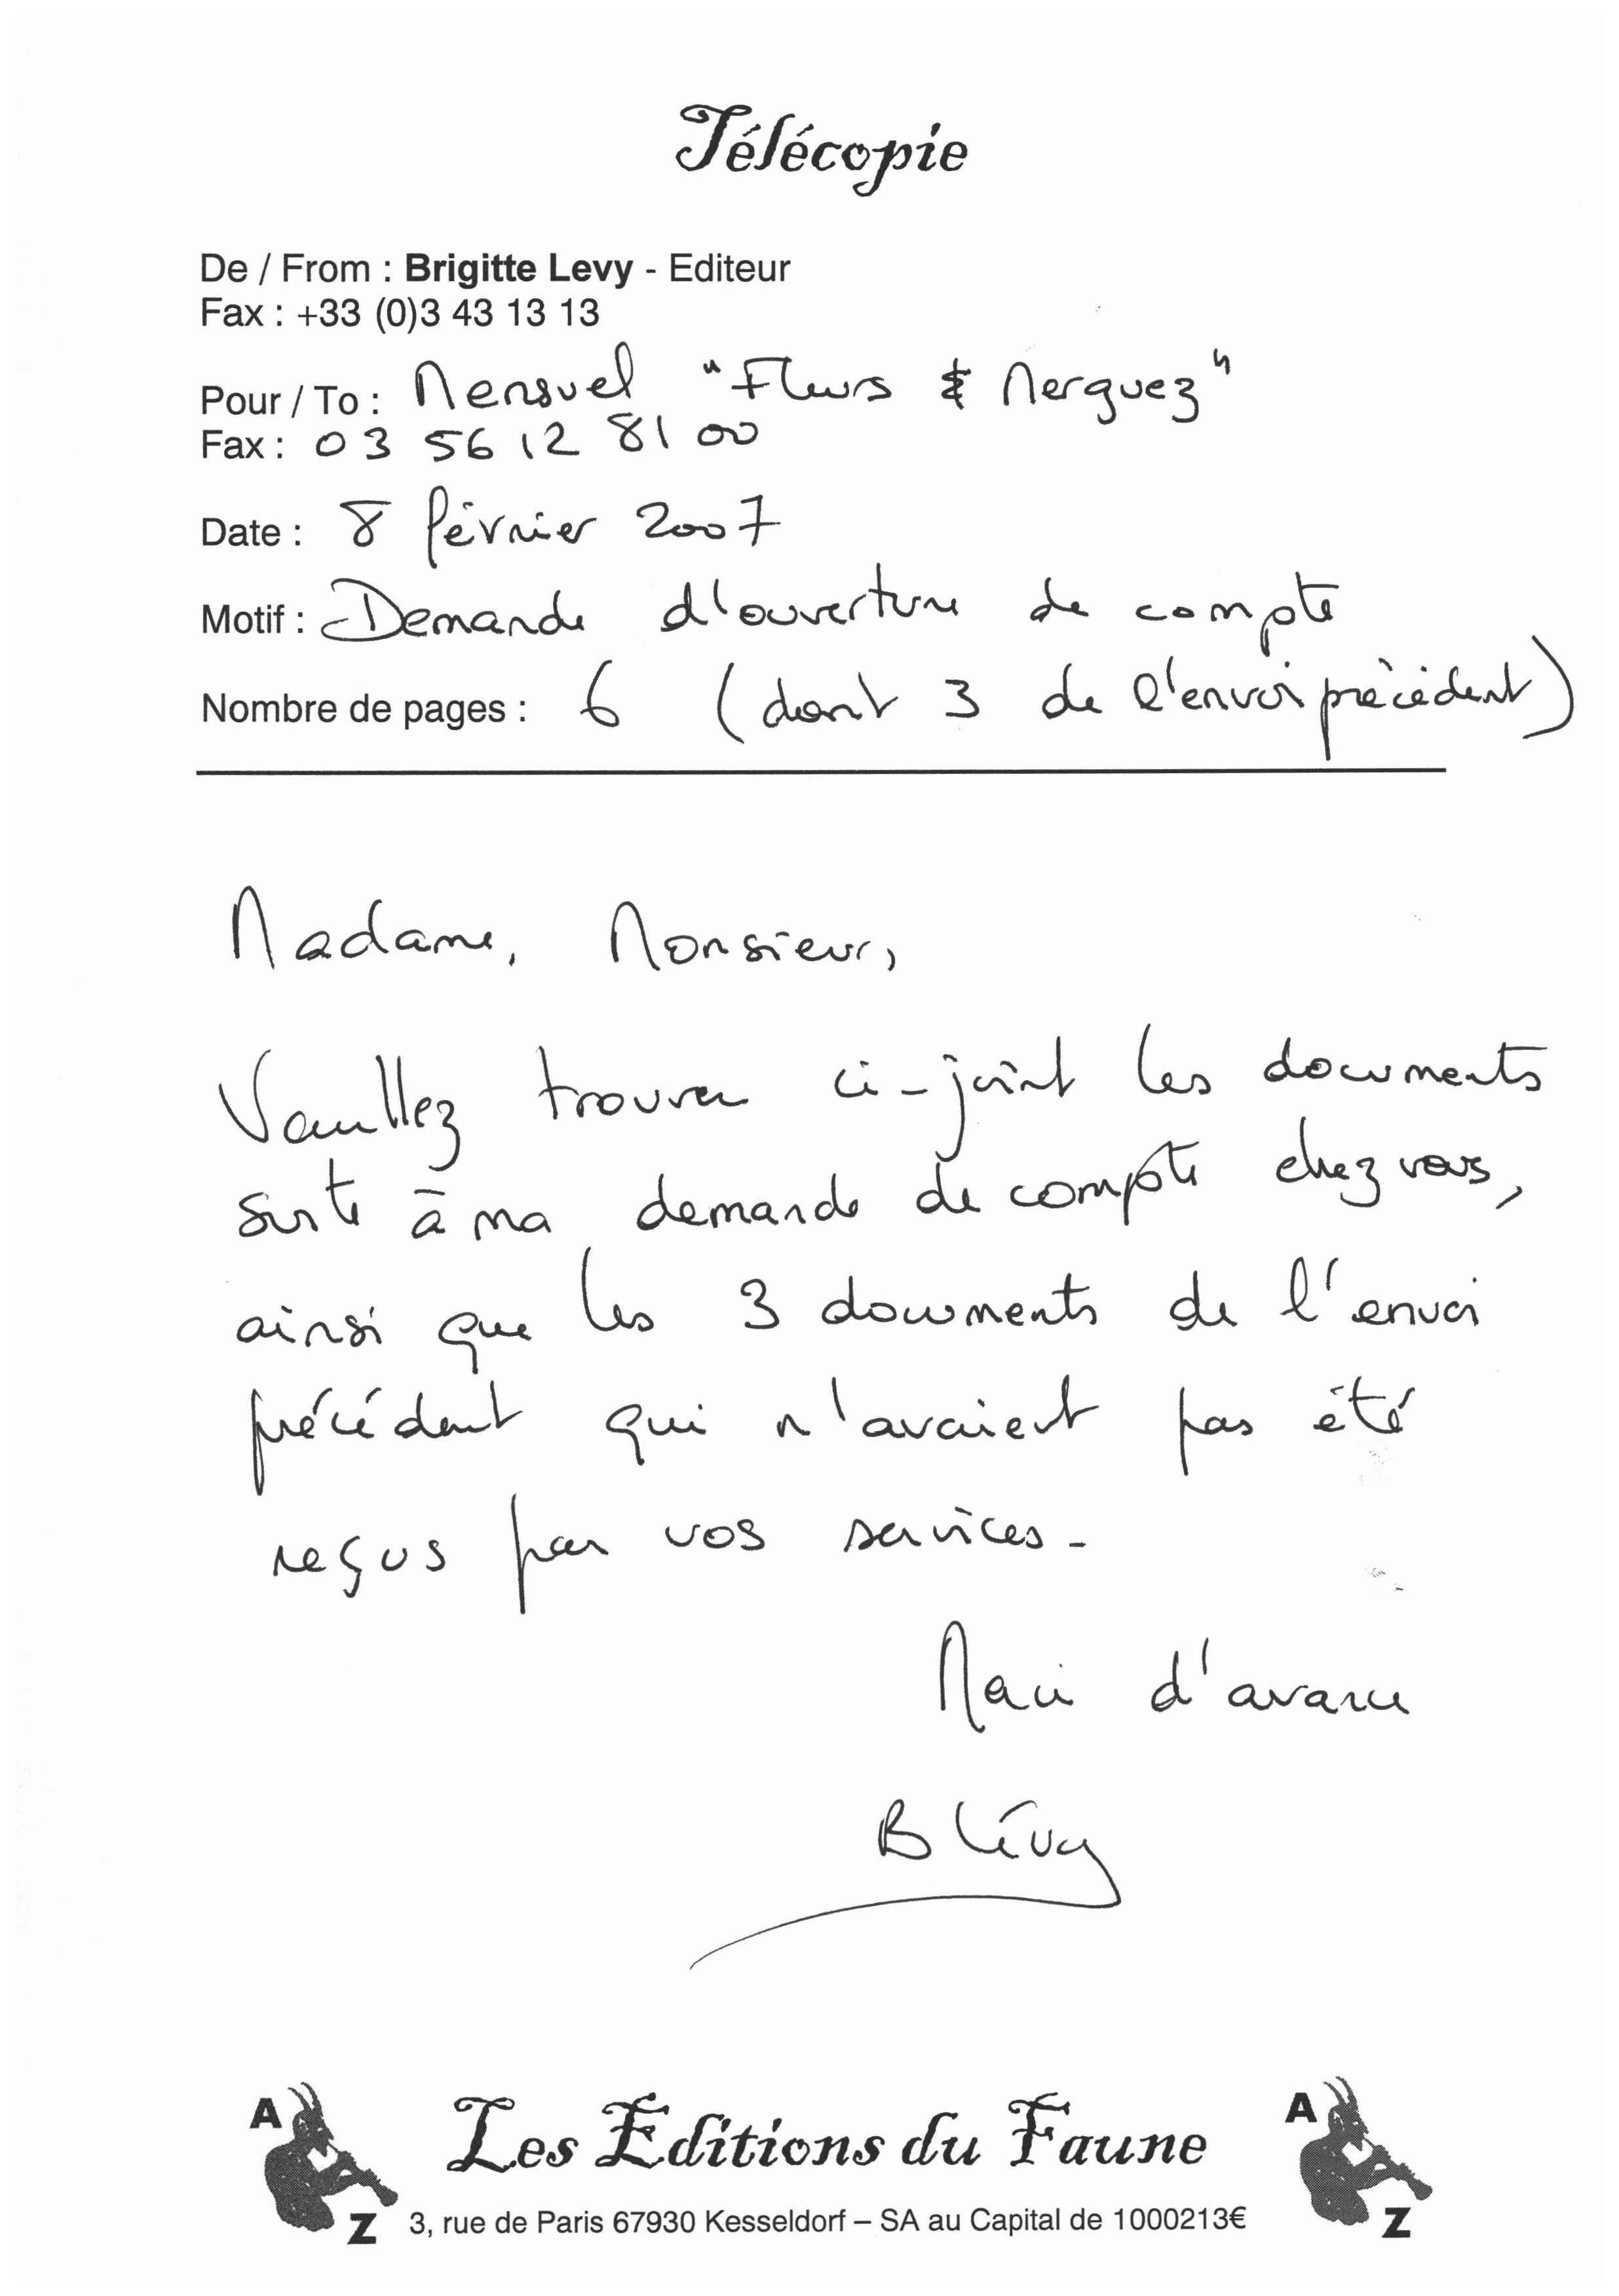 Télécopie
De / From : Brigitte Levy - Editeur
Fax : +33 (0)3 43 13 13
Pour / To : Mensuel "Fleurs & Merguez"
Fax : 03 56 12 81 00
Date : 8 février 2007
Motif : Demande d'ouverture de compte
Nombre de pages : 6 (dont 3 de l'envoi précédent)
Madame, Monsieur,
Veuillez trouver ci-joint les documents
suite à ma demande de compte chez vous,
ainsi que les 3 documents de l'envoi
précédent qui n'avaient pas été
reçus par vos services.
Merci d'avance
B Lévy
A Z Les Editions du Faune A Z
3, rue de Paris 67930 Kesseldorf – SA au Capital de 1000213€